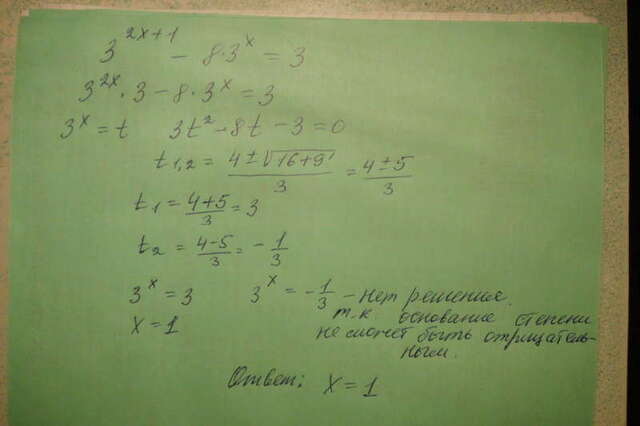 3^{2x+1} - 8·3^x = 3
3^{2x}·3 - 8·3^x = 3
3^x = t 3t² - 8t - 3 = 0
t_{1,2} = \frac{4±\sqrt{16+9}}{3} = \frac{4±5}{3}
t_1 = \frac{4+5}{3} = 3
t_2 = \frac{4-5}{3} = -\frac{1}{3}
3^x = 3 3^x = -\frac{1}{3} - нет решения.
x = 1 т-к основание степени
не может быть отрицатель-
ным.
Ответ: x = 1